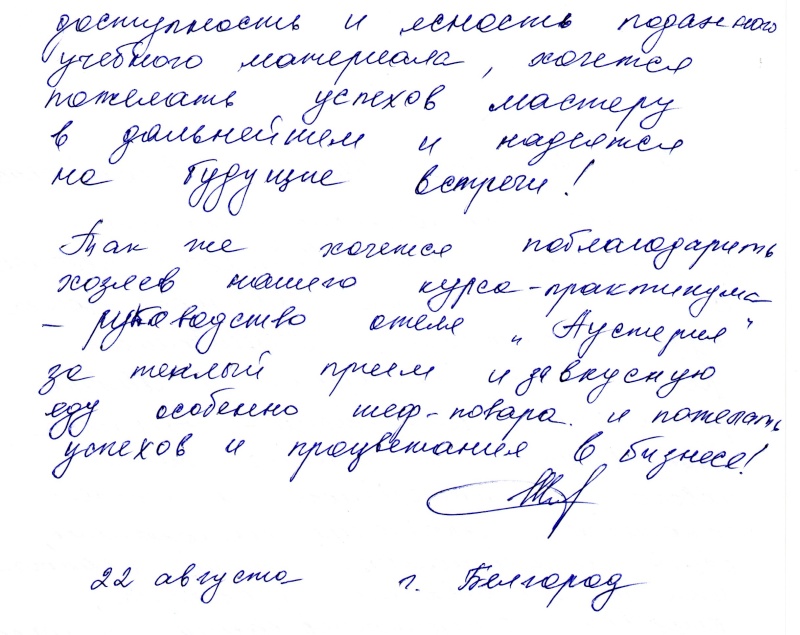 доступность и ясность поданного
учебного материала, хочется
пожелать успехов мастеру
в дальнейшем и надеятся
на будущие встречи!
Так же хочется поблагодарить
хозяев нашего курса-практикума
– руководство отеля „Аустерия"
за теплый прием и за вкусную
еду особенно шеф-повара. и пожелать
успехов и процветания в бизнесе!
22 августа г. Белгород